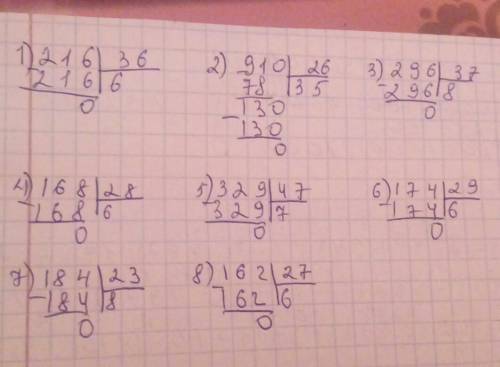 1) 216 | 36
- 216 | 6
0
2) 910 | 26
78 | 35
- 130
130
0
3) 296 | 37
- 296 | 8
0
4) 168 | 28
- 168 | 6
0
5) 329 | 47
- 329 | 7
0
6) 174 | 29
- 174 | 6
0
7) 184 | 23
- 184 | 8
0
8) 162 | 27
- 162 | 6
0